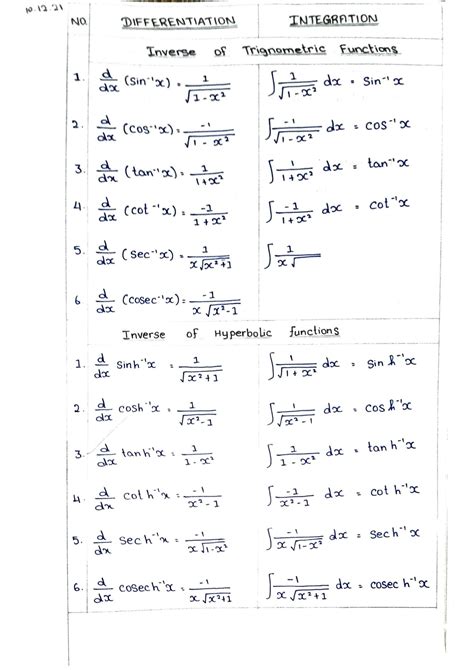 10.12.21
NO. DIFFERENTIATION INTEGRATION
Inverse of Trignometric Functions
1. d/dx (Sin⁻¹x) = 1/√(1-x²) ∫ 1/√(1-x²) dx = Sin⁻¹x
2. d/dx (cos⁻¹x) = -1/√(1-x²) ∫ -1/√(1-x²) dx = cos⁻¹x
3. d/dx (tan⁻¹x) = 1/(1+x²) ∫ 1/(1+x²) dx = tan⁻¹x
4. d/dx (cot⁻¹x) = -1/(1+x²) ∫ -1/(1+x²) dx = cot⁻¹x
5. d/dx (sec⁻¹x) = 1/(x√(x²+1)) ∫ 1/(x√
6 d/dx (cosec⁻¹x) = -1/(x√(x²-1))
Inverse of Hyperbolic functions
1. d/dx Sinh⁻¹x = 1/√(x²+1) ∫ 1/√(1+x²) dx = Sin h⁻¹x
2. d/dx cosh⁻¹x = 1/√(x²-1) ∫ 1/√(x²-1) dx = cos h⁻¹x
3. d/dx tanh⁻¹x = 1/(1-x²) ∫ 1/(1-x²) dx = tan h⁻¹x
4. d/dx cot h⁻¹x = -1/(x²-1) ∫ -1/(x²-1) dx = cot h⁻¹x
5. d/dx Sech⁻¹x = -1/(x√(1-x²)) ∫ -1/(x√(1-x²)) dx = Sech⁻¹x
6. d/dx cosech⁻¹x = -1/(x√(x²+1)) ∫ -1/(x√(x²+1)) dx = cosec h⁻¹x